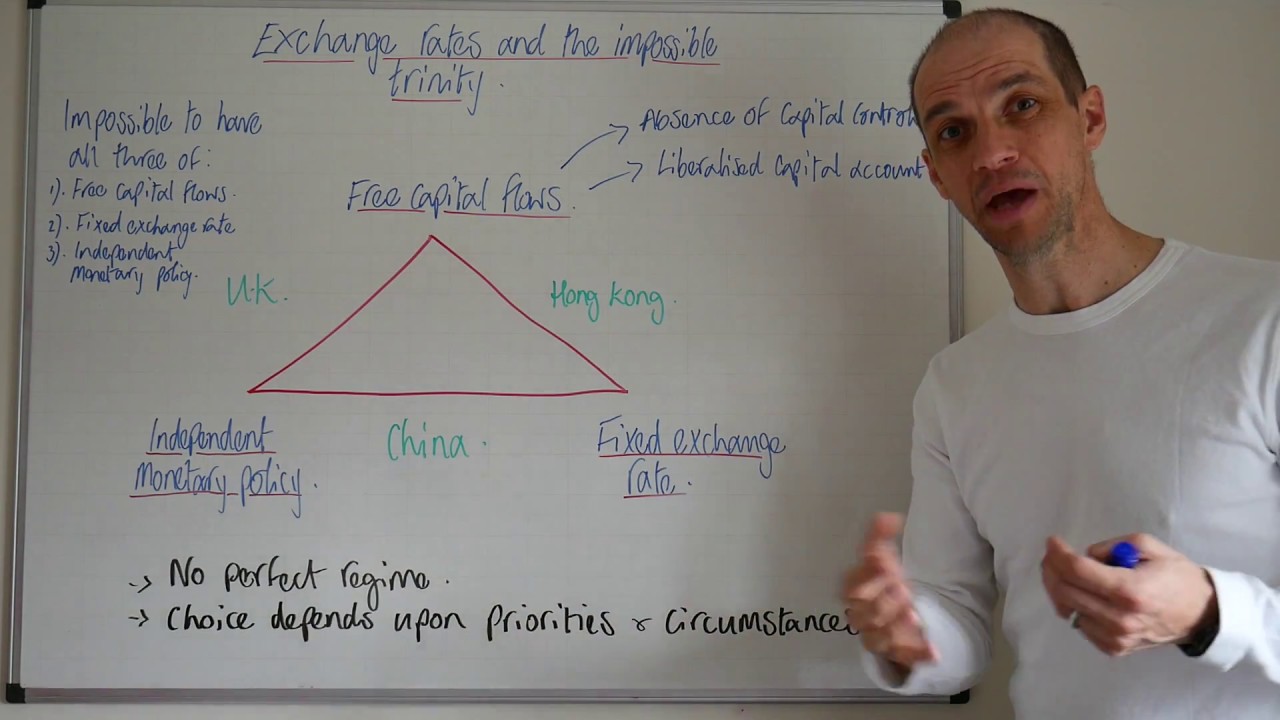 Exchange rates and the impossible
trinity.
Impossible to have
all three of:
1). Free capital flows.
2). Fixed exchange rate
3). Independent
Monetary policy.
Free capital flows.
Absence of Capital Control
Liberalised capital account
U.K.
Hong Kong.
Independent
Monetary policy.
China.
Fixed exchange
rate.
-> No perfect regime.
-> Choice depends upon priorities & circumstances